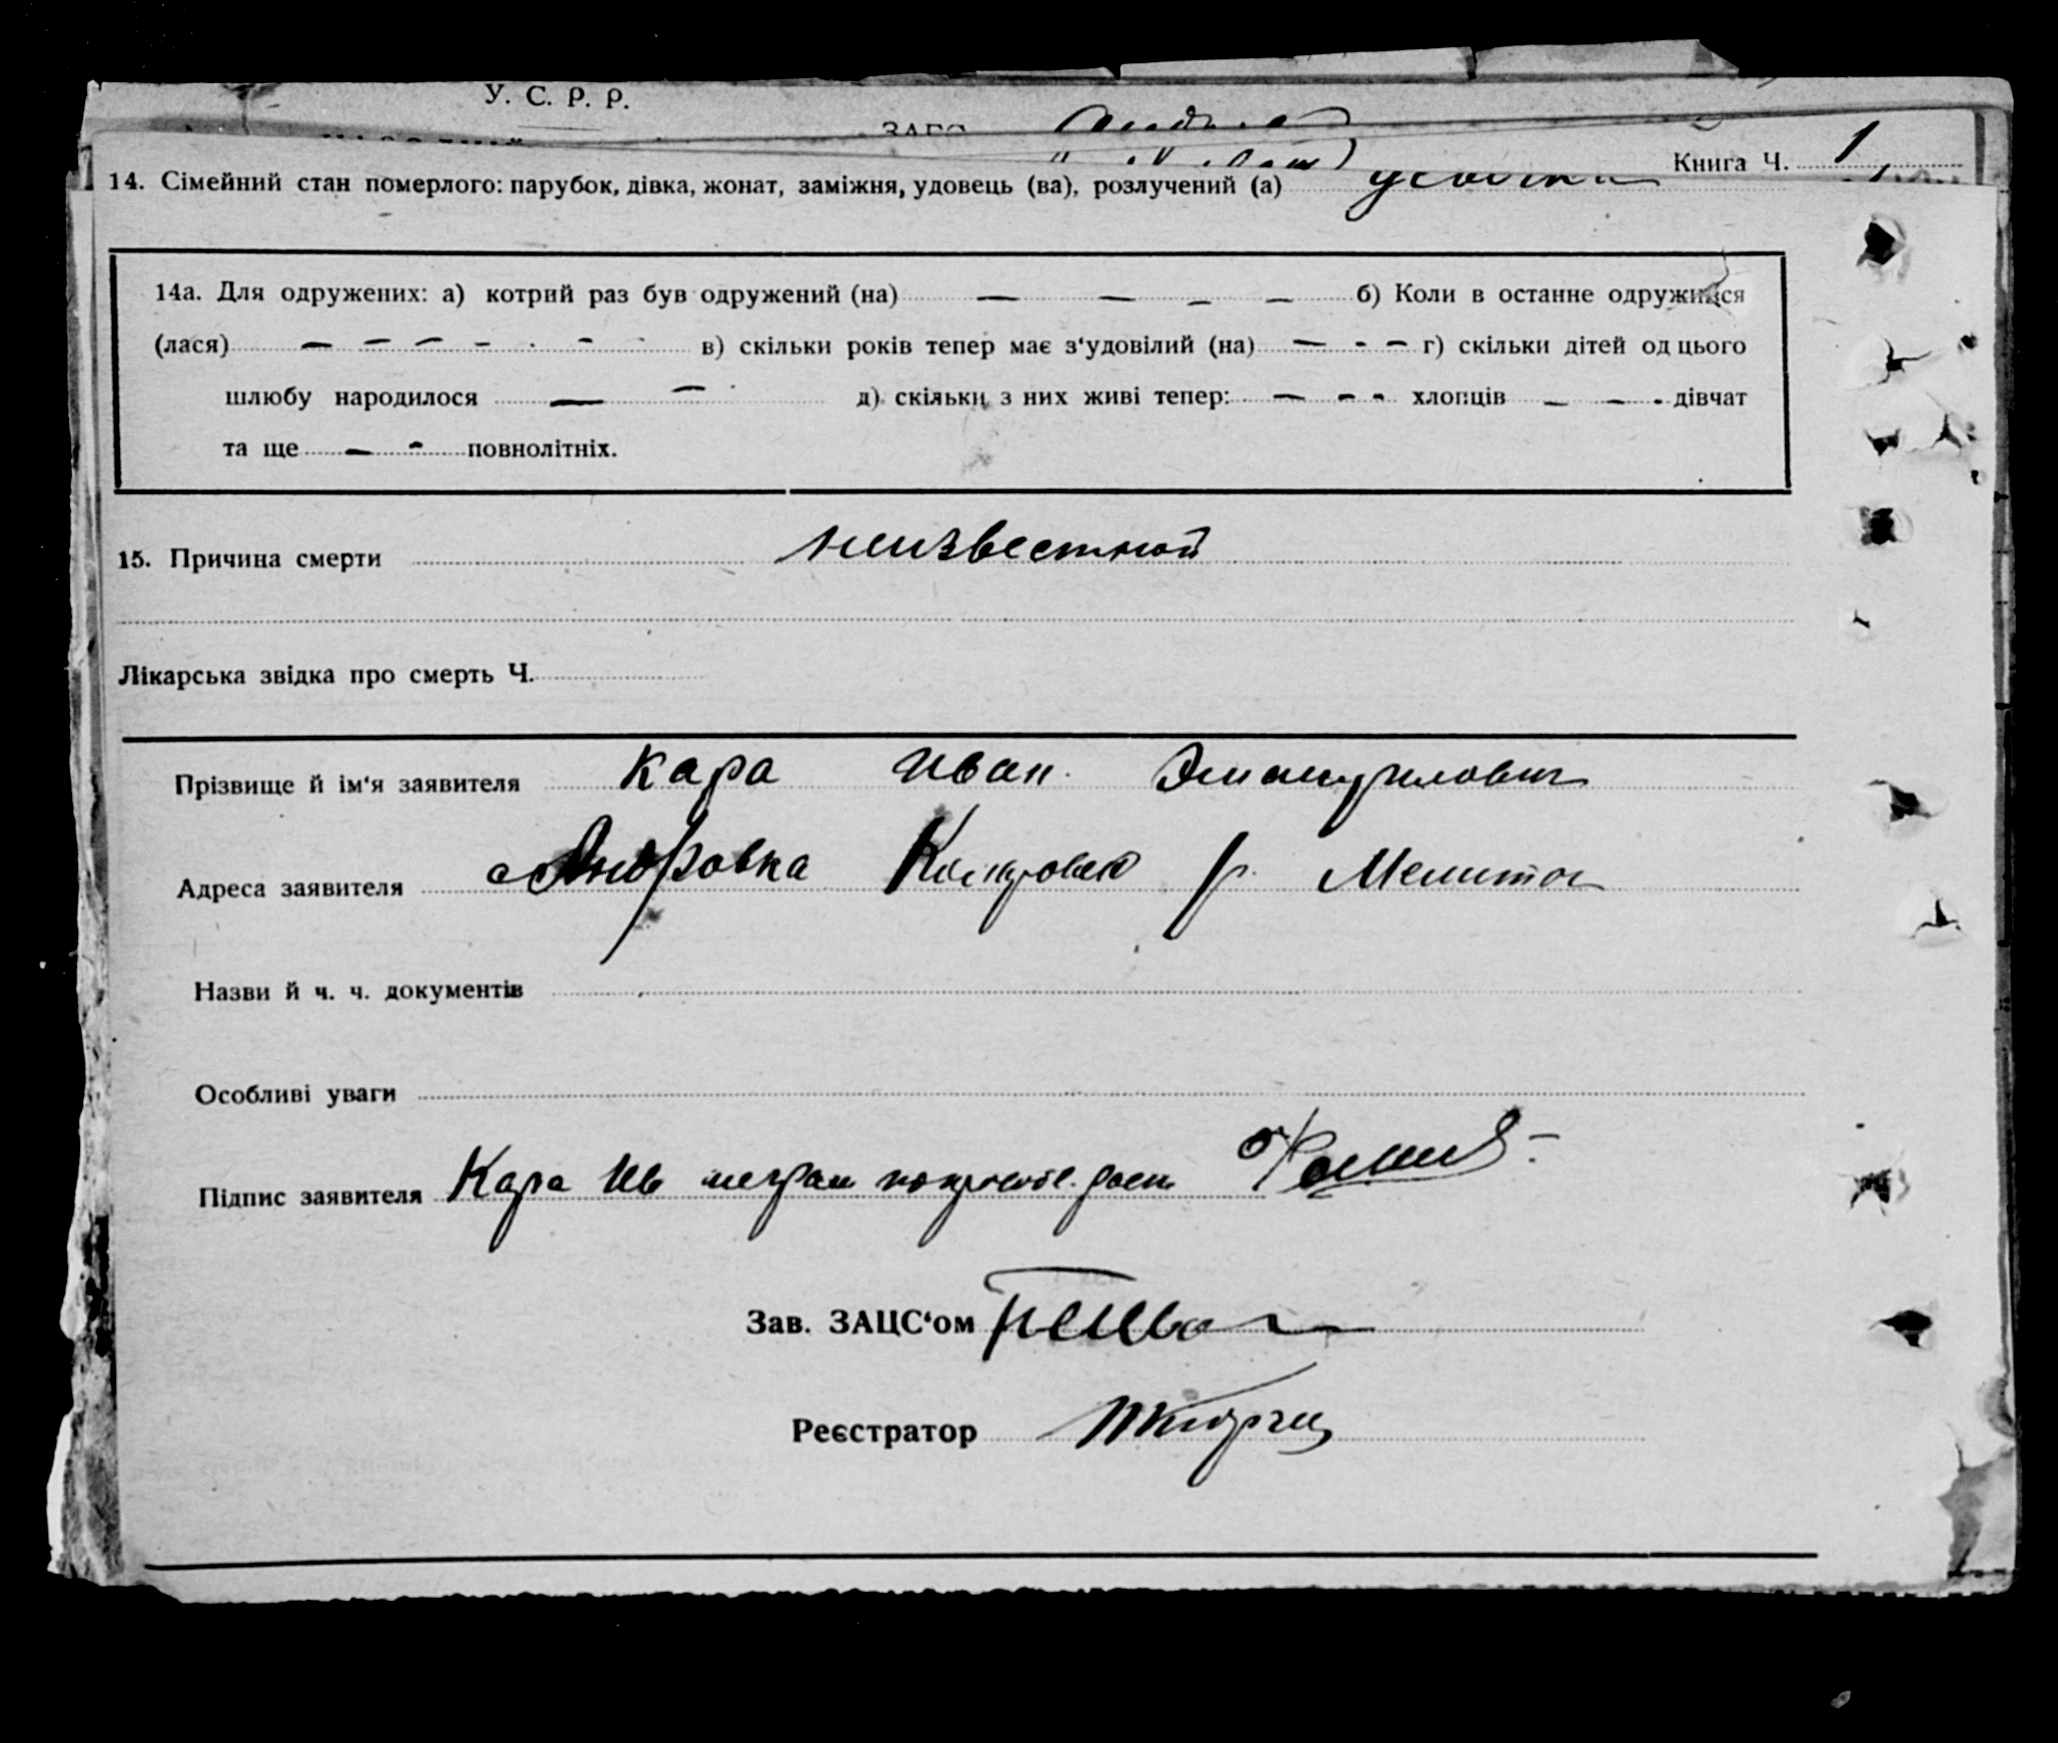 У. С. Р. Р.
Книга Ч. 1
14. Сімейний стан померлого: парубок, дівка, жонат, заміжня, удовець (ва), розлучений (а)
14а. Для одружених: а) котрий раз був одружений (на) — — — — б) Коли в останне одружився
(лася) — — — — - - - в) скільки років тепер має з‘удовілий (на) — - - г) скільки дітей од цього
шлюбу народилося — — д) скільки з них живі тепер: — - - хлопців — — - дівчат
та ще — - повнолітніх.
15. Причина смерти неизвестной
Лікарська звідка про смерть Ч.
Прізвище й ім‘я заявителя Кара Иван
Адреса заявителя с Андровка р. Мелитоп
Назви й ч. ч. документів
Особливі уваги
Підпис заявителя Кара Ив
Зав. ЗАЦС‘ом
Реєстратор